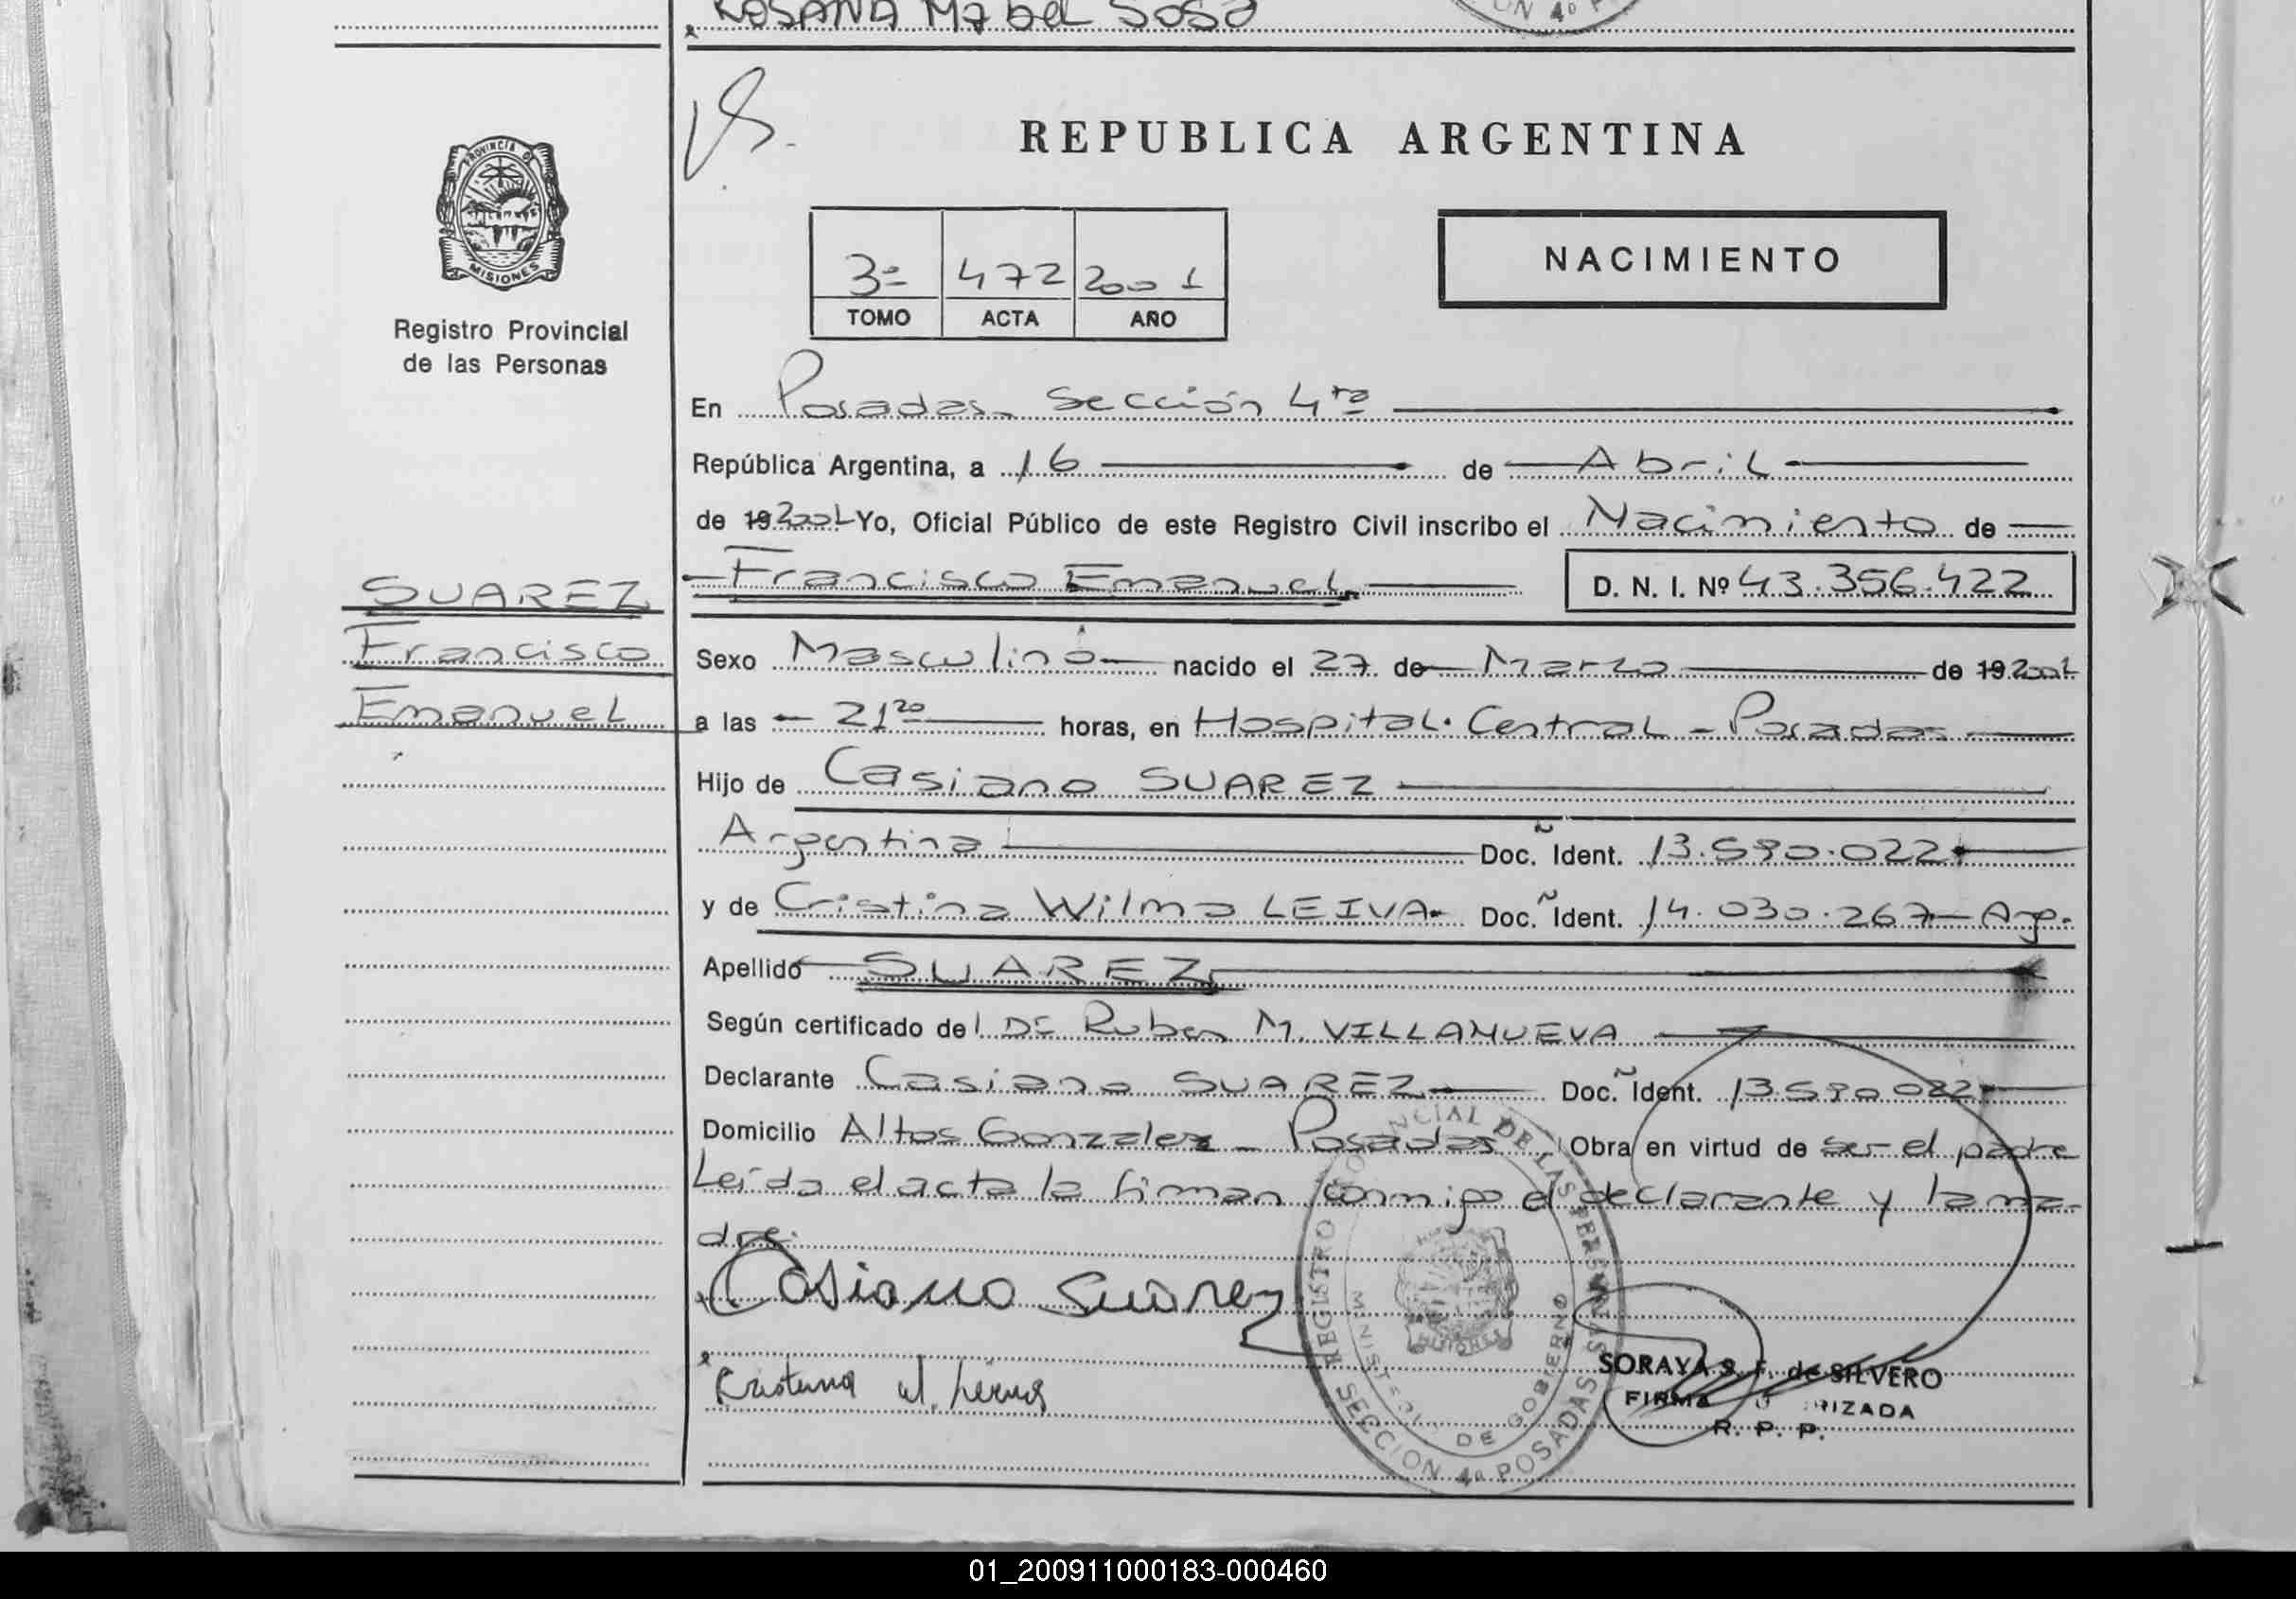 ROSANA Mabel SOSA
PROVINCIA DE
MISIONES
Registro Provincial
de las Personas
REPUBLICA ARGENTINA
NACIMIENTO
3º 472 2001
TOMO ACTA AÑO
En Posadas Sección 4ta
República Argentina, a 16 de Abril
de 19 2001 Yo, Oficial Público de este Registro Civil inscribo el Nacimiento de
Francisco Emanuel D. N. I. Nº 43.356.422
SUAREZ
Francisco
Emanuel
Sexo Masculino nacido el 27 de Marzo de 19 2001
a las 21 20 horas, en Hospital Central - Posadas
Hijo de Casiano SUAREZ
Argentina Doc. Ident. 13.590.022
y de Cristina Wilma LEIVA Doc. Ident. 14.030.267 Arg.
Apellido SUAREZ
Según certificado del Dr Ruben M. VILLANUEVA
Declarante Casiano SUAREZ Doc. Ident. 13590022
Domicilio Altos Gonzalez - Posadas Obra en virtud de ser el padre
Leída el acta la firman conmigo el declarante y la ma-
dre.
Casiano Suarez
REGISTRO PROVINCIAL DE LAS PERSONAS
MINISTERIO DE GOBIERNO
MISIONES
SECCION 4a POSADAS
SORAYA S. F. de SILVERO
FIRMA RIZADA
R. P. P.
01_200911000183-000460